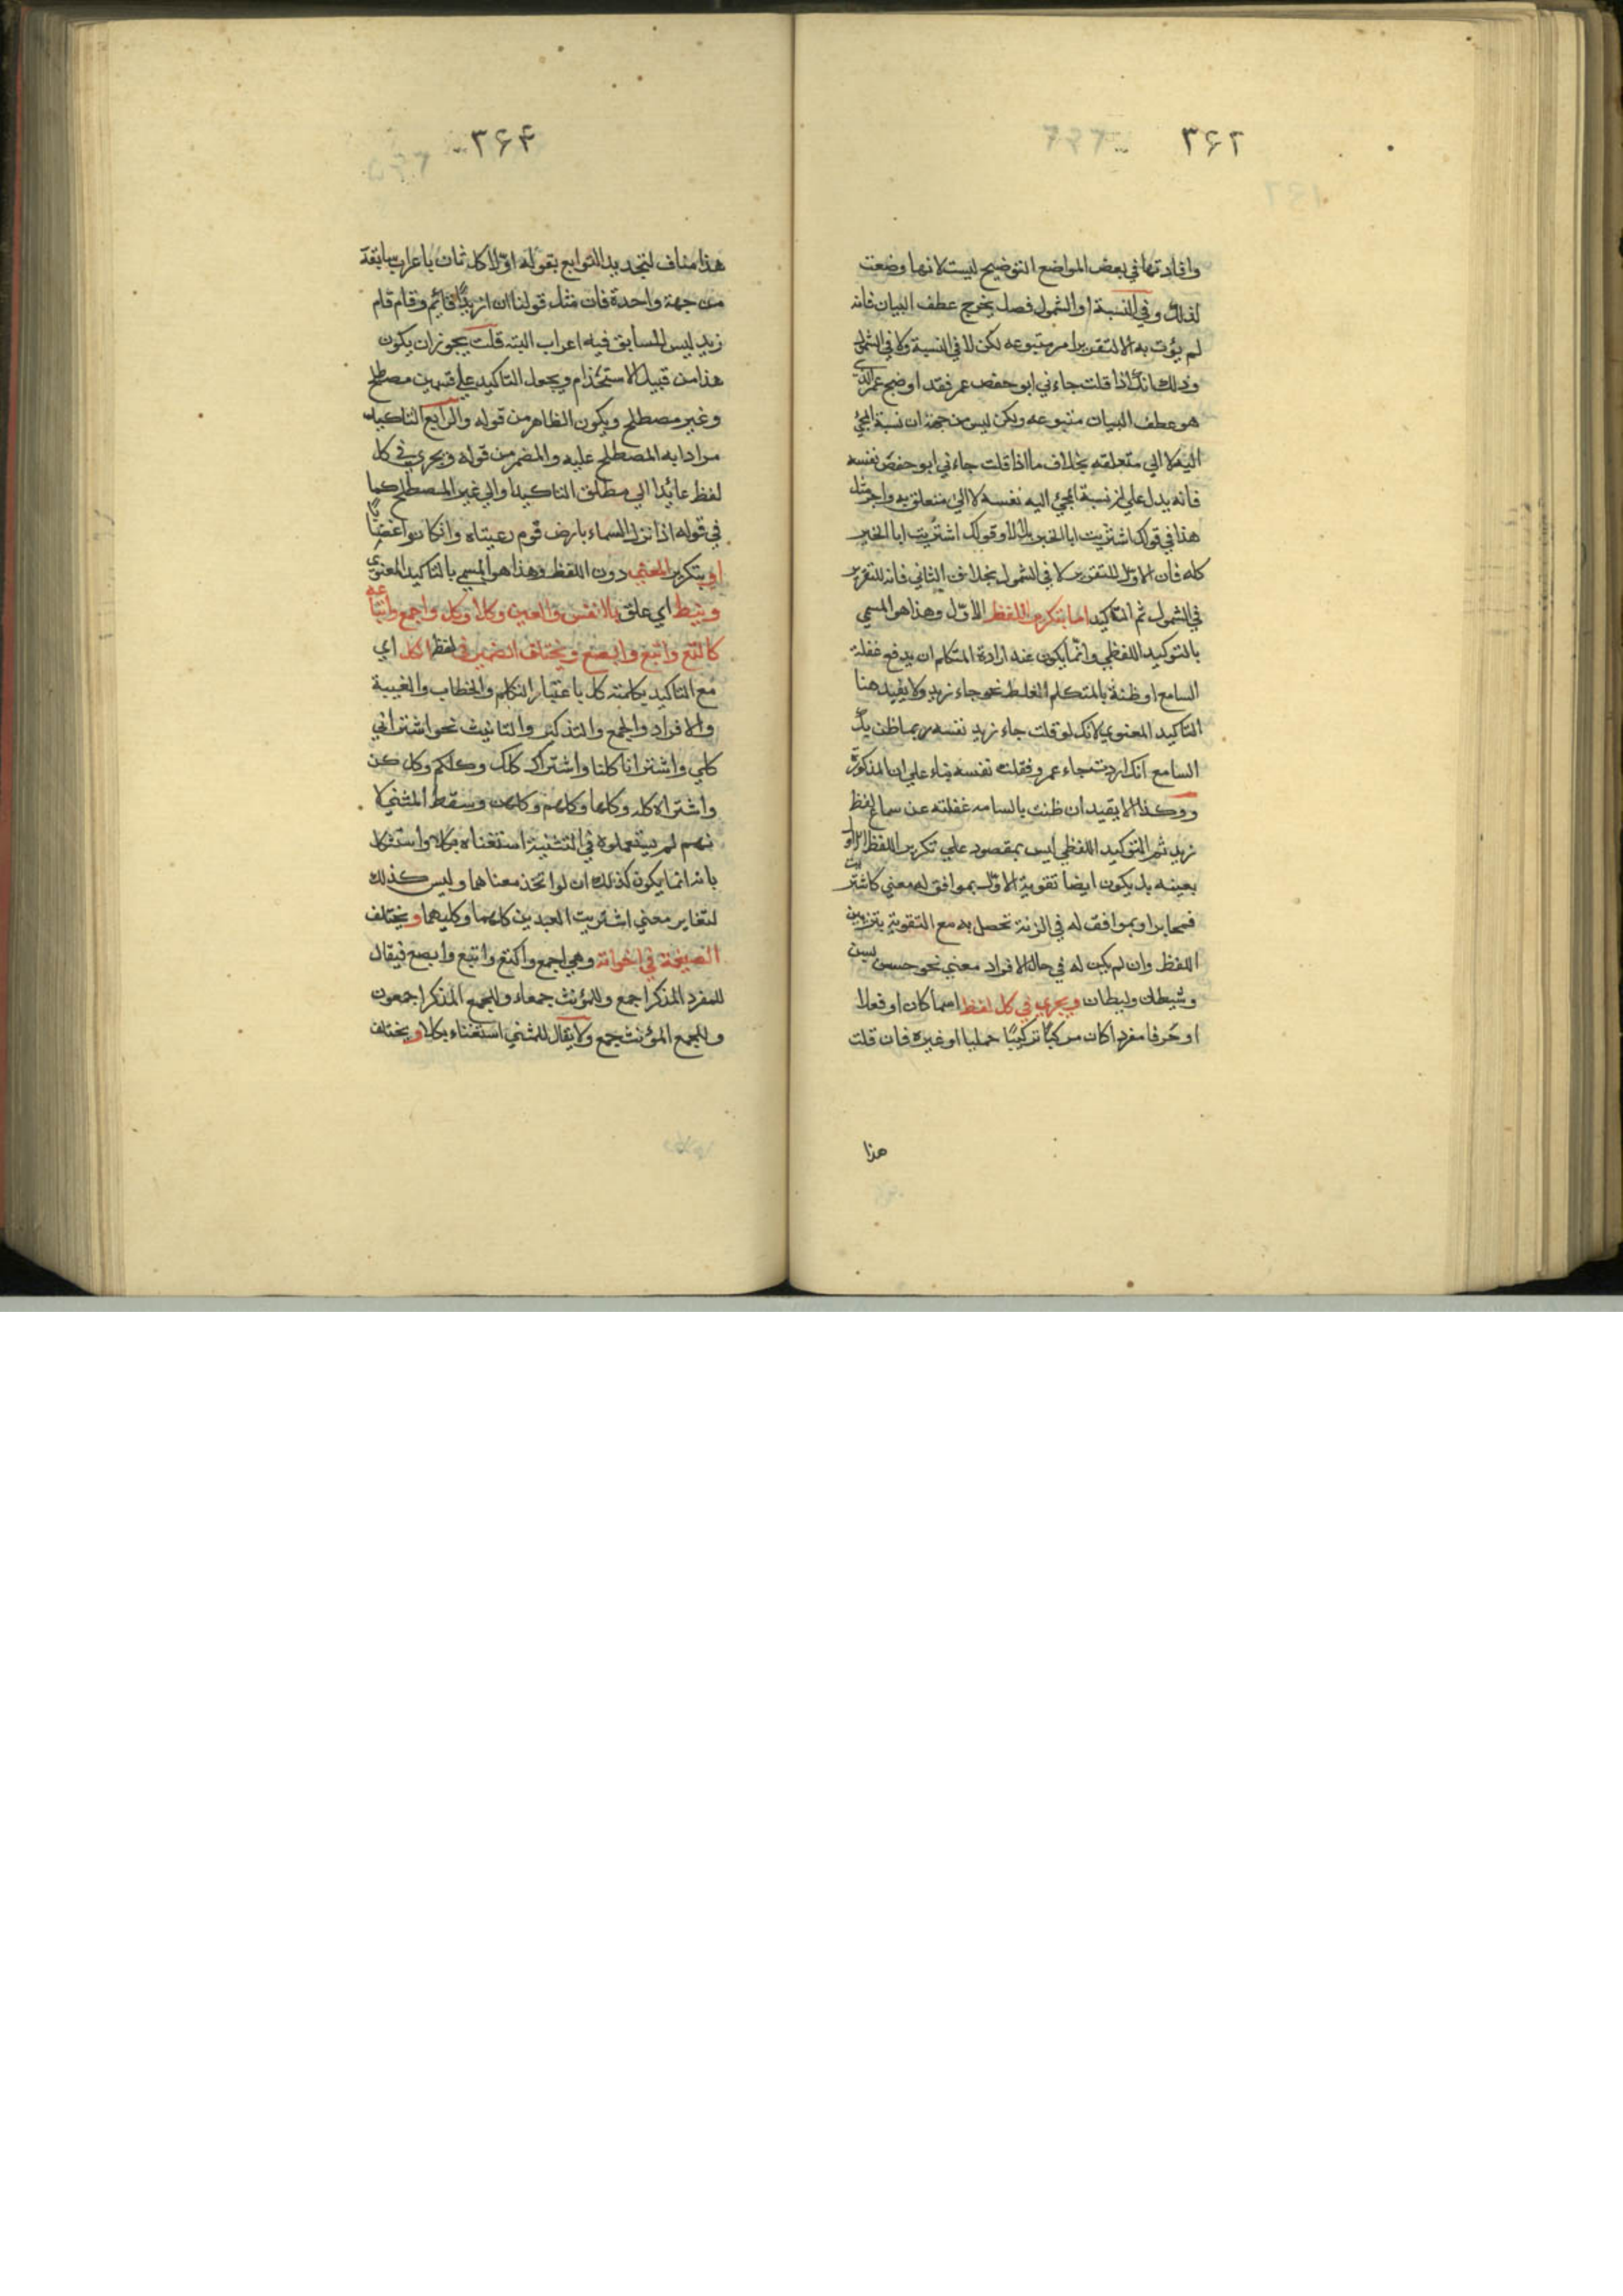 ٣۶٢
وافادتها في بعض المواضع التوضيح ليست لانها وضعت
لذلك وفي النسبة او الشمول فصل يخرج عطف البيان فانه
لم يؤت به الا لتقرير امر متبوعه لكن لا في النسبة ولا في الشمول
وذلك انك اذا قلت جاءني ابو حفص عمر فقد اوضح عمر الذي
هو عطف البيان متبوعه ولكن ليس من جهة ان نسبة المجئ
اليه لا الي متعلقه بخلاف ما اذا قلت جاءني ابو حفص نفسه
فانه يدل علي ان نسبة المجئ اليه نفسه لا الي متعلق به واجر مثل
هذا في قولك اشتريت ابا الخير بلالا وقولك اشتريت ابا الخير
كله فان الاول للتقرير لا في الشمول بخلاف الثاني فانه للتقرير
في الشمول ثم التاكيد اما بتكرير اللفظ الاول وهذا هو المسمي
بالتوكيد اللفظي وانما يكون عند ارادة المتكلم ان يدفع غفلة
السامع او ظنه بالمتكلم الغلط نحو جاء زيد ولا يفيد هنا
التاكيد المعنوي لانك لو قلت جاء زيد نفسه ربما ظن بك
السامع انك اردت جاء عمرو فقلت نفسه بناء علي ان المذكور
وكذا لا يفيد ان ظننت بالسامع غفلته عن سماع لفظ
زيد ثم التوكيد اللفظي ليس بمقصود علي تكرير اللفظ الاول
بعينه بل يكون ايضا تقوية الاول بموافق له معني كاشتريت
او بموافق له في الزنة تحصل به مع التقوية تزيين
اللفظ وان لم يكن له في حال الافراد معني نحو حسن بسن
وشيطان وليطان ويجري في كل لفظ اسما كان او فعلا
او حرفا مفردا كان مركبا تركيبا جمليا او غيره فان قلت
هذا
٣۶۴
هذا مناف لتحديد التوابع بقوله اولا كل ثان باعراب سابقه
من جهة واحدة فان مثل قولنا ان ان زيدا قائم وقام قام
زيد ليس للسابق فيه اعراب البته قلت يجوز ان يكون
هذا من قبيل الاستخدام ويجعل التاكيد علي قسمين مصطلح
وغير مصطلح ويكون الظاهر من قوله والرابع التاكيد
مرادا به المصطلح عليه والمضمر من قوله ويجري في كل
لفظ عائدا الي مطلق التاكيد او الي غير المصطلح كما
في قوله اذا نزل السماء بارض قوم رعيناه وان كانوا غضابا
او بتكرير المعني دون اللفظ وهذا هو المسمي بالتاكيد المعنوي
ونيط اي علق بالنفس والعين وكلا وكل واجمع واتباعه
كاكتع وابتع وابصع ويختلف الضمير في لفظ الكل اي
مع التاكيد بكلمة كل باعتبار التكلم والخطاب والغيبة
والافراد والجمع والتذكير والتانيث نحو اشتراني
كلي واشترانا كلنا واشتراك كلك وكلكم وكلكن
واشتراه كله وكلها وكلهم وكلهن وسقط المثني لا
نهم لم يستعملوه في التثنية استغناء بكلا واستشكل
بانه انما يكون كذلك ان لو اتحد معناهما وليس كذلك
لتغاير معني اشتريت العبدين كلهما وكليهما ويختلف
الصيغة في اخواته وهي اجمع واكتع وابتع وابصع فيقال
للمفرد المذكر اجمع وللمؤنث جمعاء وللجمع المذكر اجمعون
وللجمع المؤنث جمع ولا يقال للمثني استغناء بكلا ويختلف